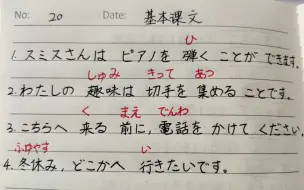 No: 20 Date: 基本课文
ひ
1. スミスさんは ピアノを 弾く ことが できます。
しゅみ きって あつ
2. わたしの 趣味は 切手を 集める ことです。
く まえ でんわ
3. こちらへ 来る 前に, 電話を かけて ください。
ふゆやす い
4. 冬休み, どこかへ 行きたいです。